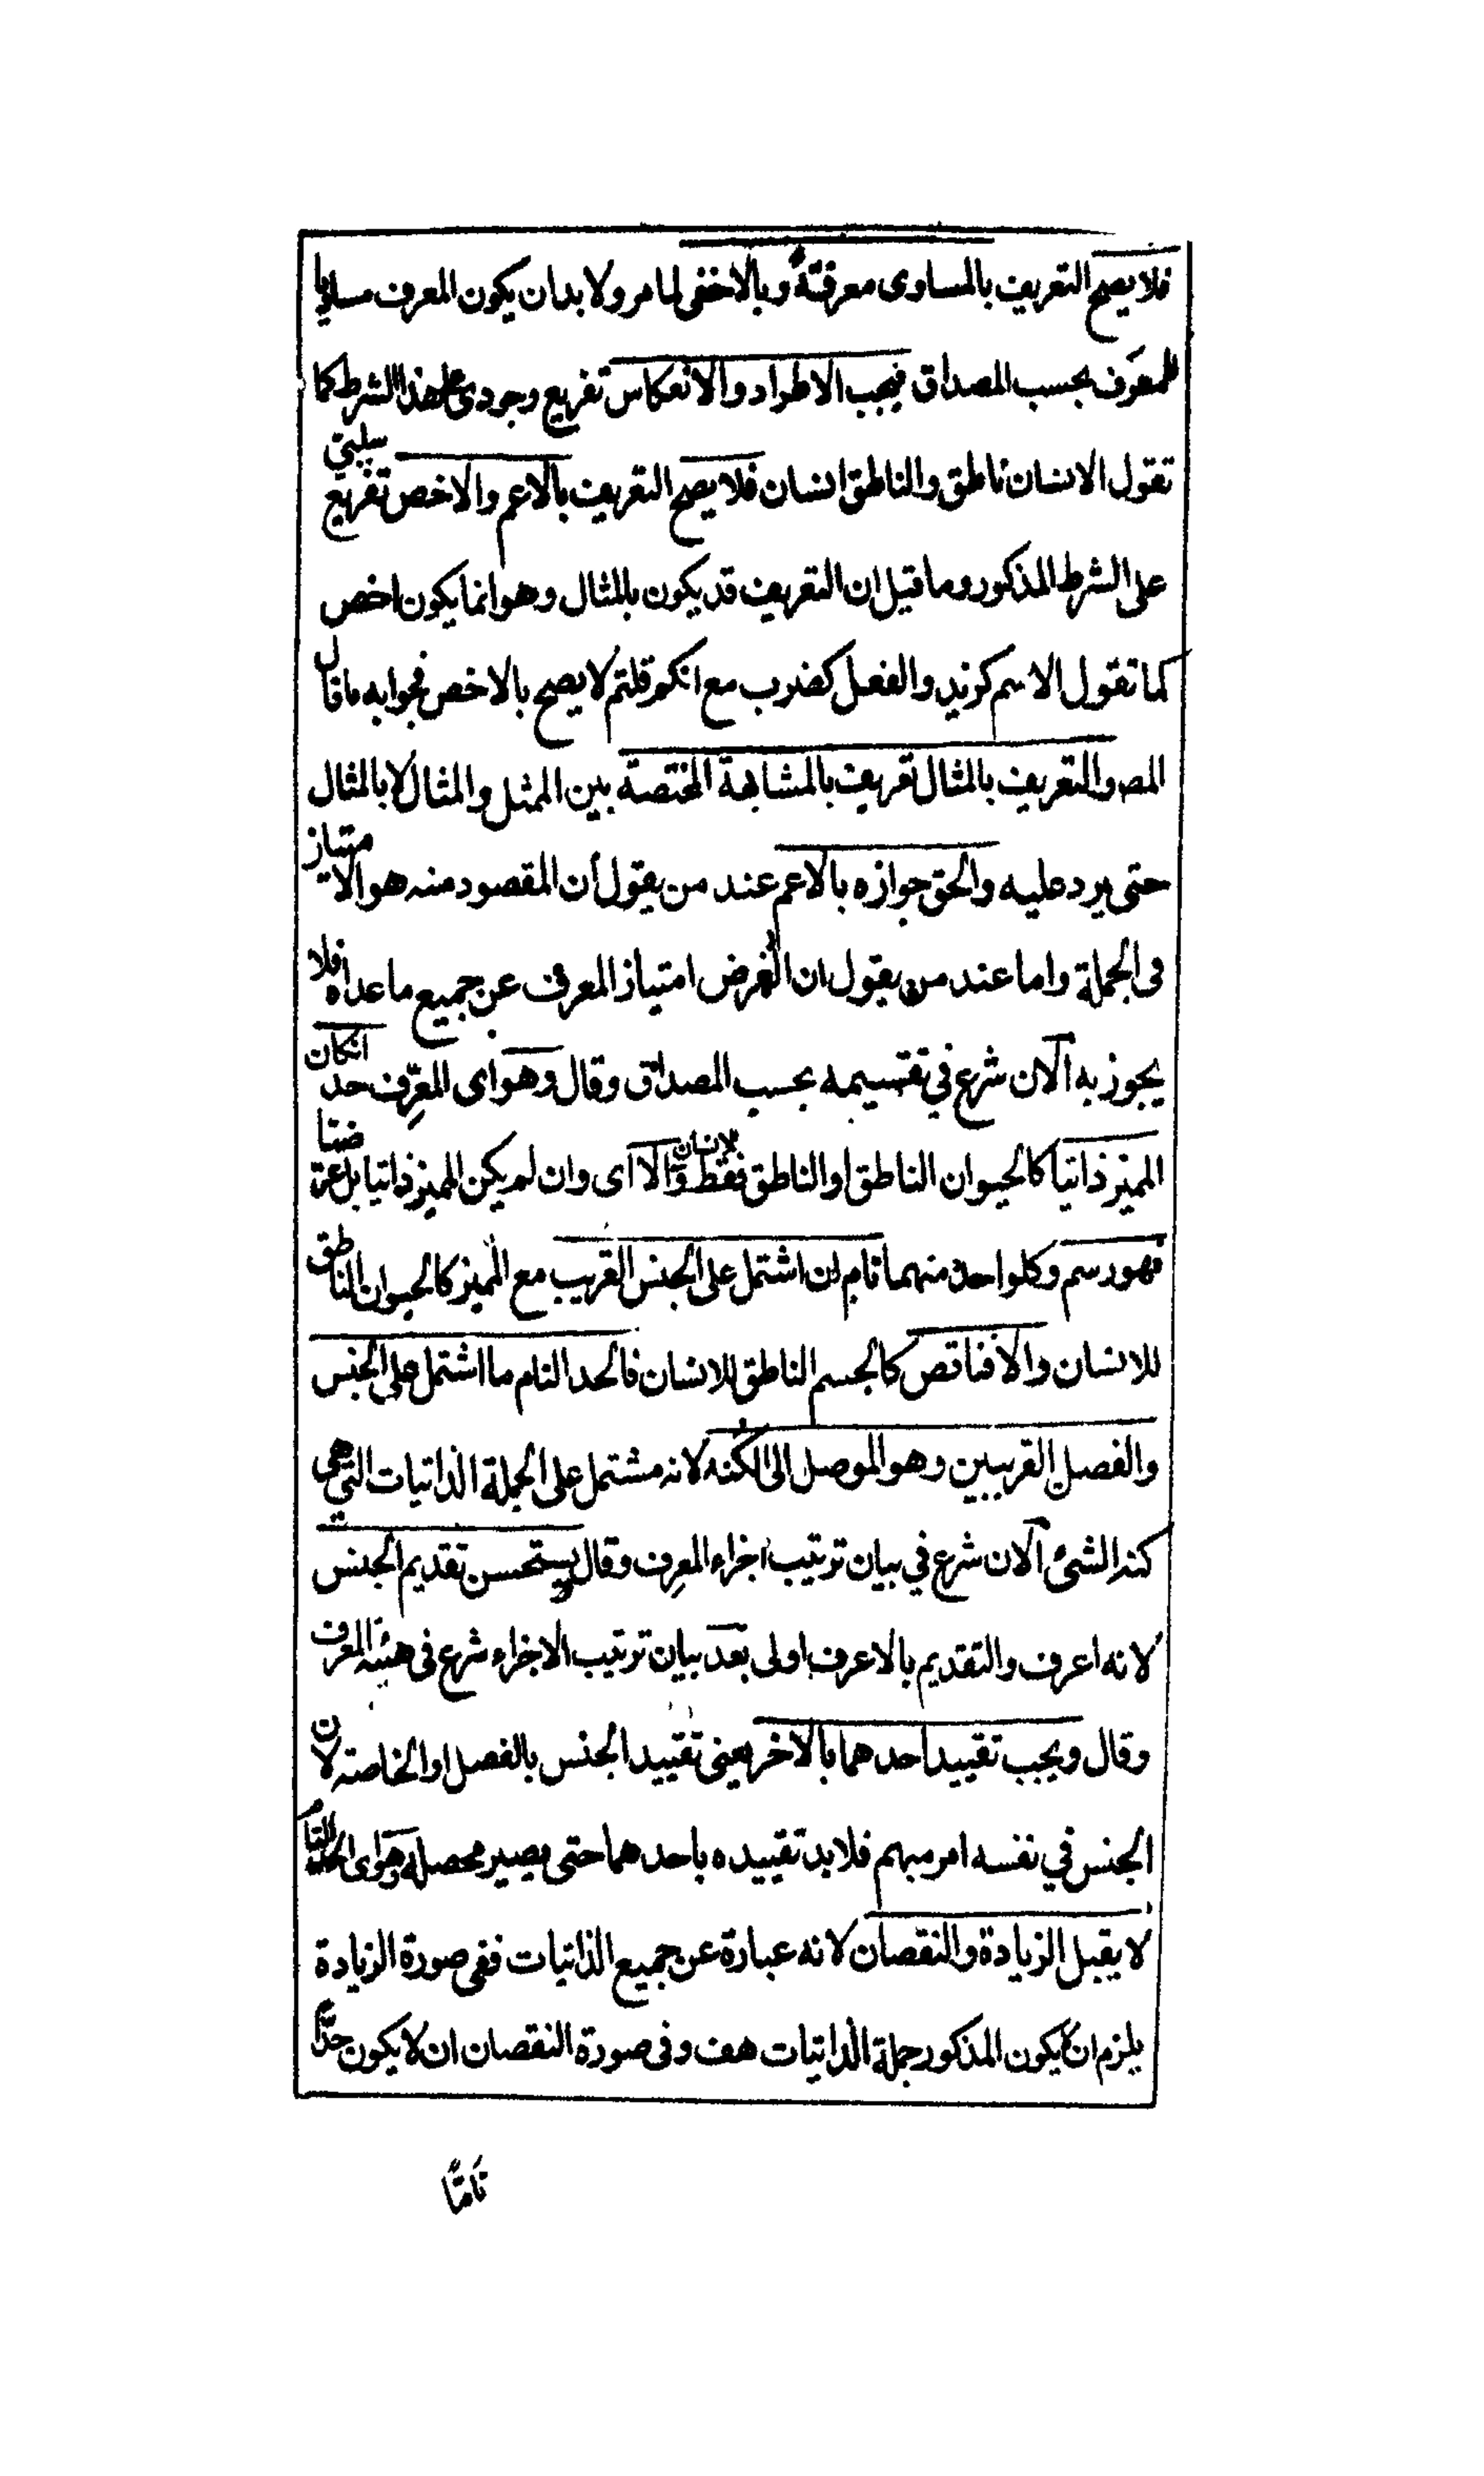 فلا يصح التعريف بالمساوى معرفة وبالاخفى لما مر ولا بد ان يكون المعرف مساويا
للمعرَف بحسب المصداق فيجب الاطراد والانعكاس تفريع وجودى على هذا الشرط كما
تقول الانسان ناطق والناطق انسان فلا يصح التعريف بالاعم والاخص تفريع سلبي
على الشرط المذكور وما قيل ان التعريف قد يكون بالمثال وهو انما يكون اخص
كما تقول الاسم كزيد والفعل كضرب مع انكم قلتم لا يصح بالاخص فجوابه ما قال
المص والتعريف بالمثال تعريف بالمشابهة المختصة بين الممثل والمثال لا بالمثال
حتى يرد عليه والحق جوازه بالاعم عند من يقول أن المقصود منه هو الامتياز
فى الجملة واما عند من يقول ان الغرض امتياز المعرف عن جميع ما عداه فلا
يجوز به آلان شرع في تقسيمه بحسب المصداق وقال وهو اى المعرِّف حد انكان
المميز ذاتيا كالحيوان الناطق او الناطق فقط للانسان والا اى وان لم يكن المميز ذاتيا بل عرضيا
فهو رسم وكل واحد منهما تام ان اشتمل على الجنس القريب مع المميز كالحيوان الناطق
للانسان والا فناقص كالجسم الناطق للانسان فالحد التام ما اشتمل على الجنس
والفصل القريبين وهو الموصل الى الكنه لانه مشتمل على الجملة الذاتيات التي هي
كنه الشئ آلان شرع في بيان ترتيب اجزاء المعرِف وقال ويستحسن تقديم الجنس
لانه اعرف والتقديم بالاعرف اولى بعد بيان ترتيب الاجزاء شرع فى هيئة المعرف
وقال ويجب تقييد احدهما بالاخر يعنى تقييد الجنس بالفصل او الخاصة لان
الجنس في نفسه امر مبهم فلا بد تقييده باحدهما حتى يصير محصلا وهو اى الحد التام
لا يقبل الزيادة والنقصان لانه عبارة عن جميع الذاتيات ففى صورة الزيادة
يلزم ان لا يكون المذكور جملة الذاتيات هف وفى صورة النقصان ان لا يكون حدّاً
تامًا